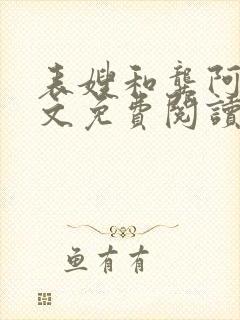 表嫂和龔阿
文免費閱讀
鱼有有